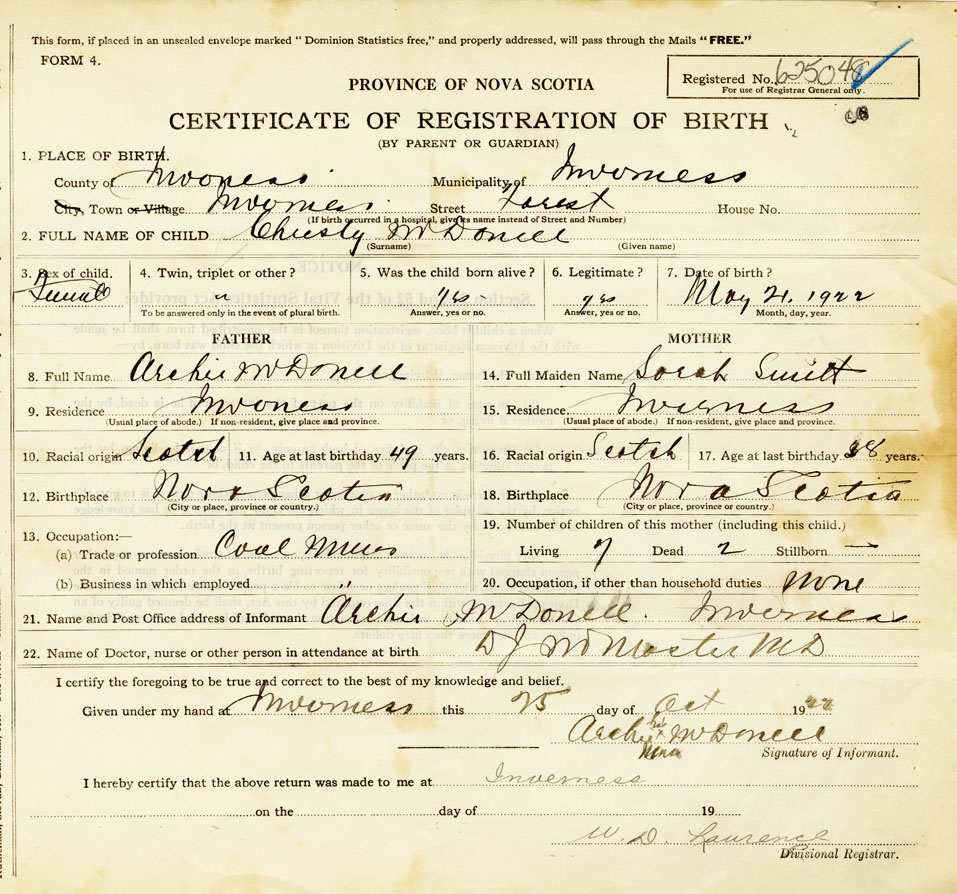 This form, if placed in an unsealed envelope marked "Dominion Statistics free," and properly addressed, will pass through the Mails "FREE."
FORM 4.
Registered No. 625048
For use of Registrar General only.
PROVINCE OF NOVA SCOTIA
CERTIFICATE OF REGISTRATION OF BIRTH
(BY PARENT OR GUARDIAN)
1. PLACE OF BIRTH.
County of Inverness Municipality of Inverness
City, Town or Village Inverness Street Forest House No.
(If birth occurred in a hospital, give its name instead of Street and Number)
2. FULL NAME OF CHILD Christy McDonell
(Surname) (Given name)
3. Sex of child. 4. Twin, triplet or other? 5. Was the child born alive? 6. Legitimate? 7. Date of birth?
Female " yes - yes May 21. 1922
To be answered only in the event of plural birth. Answer, yes or no. Answer, yes or no. Month, day, year.
FATHER MOTHER
8. Full Name Archie McDonell 14. Full Maiden Name Sarah Smith
9. Residence Inverness 15. Residence. Inverness
(Usual place of abode.) If non-resident, give place and province. (Usual place of abode.) If non-resident, give place and province.
10. Racial origin Scotch 11. Age at last birthday 49 years. 16. Racial origin Scotch 17. Age at last birthday 38 years.
12. Birthplace Nova Scotia 18. Birthplace Nova Scotia
(City or place, province or country.) (City or place, province or country.)
13. Occupation:— 19. Number of children of this mother (including this child.)
(a) Trade or profession Coal Miner Living 7 Dead 2 Stillborn —
(b) Business in which employed " 20. Occupation, if other than household duties None
21. Name and Post Office address of Informant Archie McDonell. Inverness
22. Name of Doctor, nurse or other person in attendance at birth D J McMaster MD
I certify the foregoing to be true and correct to the best of my knowledge and belief.
Given under my hand at Inverness this 25 day of Oct 1922
Archie his x McDonell
Signature of Informant.
I hereby certify that the above return was made to me at Inverness
on the day of 19
W. D. Lawrence
Divisional Registrar.